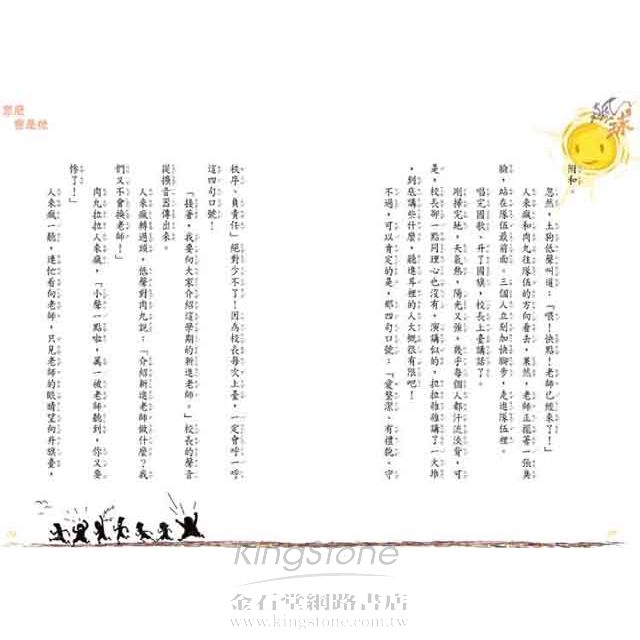 附和。
忽然，土狗低聲叫道：「喂！快點！老師已經來了！」
人來瘋和肉丸往隊伍的方向看去，果然，老師正擺著一張臭
臉，站在隊伍最前面。三個人立刻加快腳步，走進隊伍裡。
唱完國歌、升了國旗，校長上臺講話了。
剛掃完地，天氣熱，陽光又強，幾乎每個人都汗流浹背，可
是，校長卻一點同理心也沒有，演講似的，拉拉雜雜講了一大堆
，到底講些什麼，聽進耳裡的人大概很有限吧！
不過，可以肯定的是，那四句口號：「愛整潔、有禮貌、守
秩序、負責任」絕對少不了！因為校長每次上臺，一定會呼一呼
這四句口號！
「接著，我要向大家介紹這學期的新進老師。」校長的聲音
從擴音器傳出來。
人來瘋轉過頭，低聲對肉丸說：「介紹新進老師做什麼？我
們又不會換老師！」
肉丸拉拉人來瘋，「小聲一點啦，萬一被老師聽到，你又要
慘了！」
人來瘋一聽，連忙看向老師，只見老師的眼睛望向升旗臺，
怎麼
會是他
KingStone
金石堂網路書店
www.kingstone.com.tw